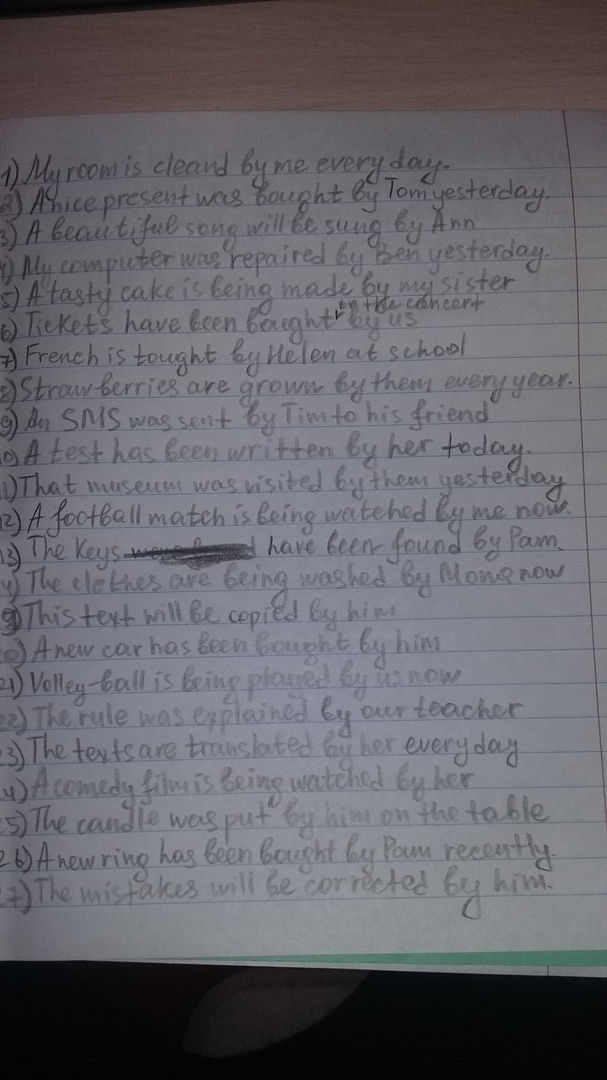 1) My room is cleand by me every day.
2) A nice present was bought by Tom yesterday.
3) A beautiful song will be sung by Ann
4) My computer was repaired by Ben yesterday.
5) A tasty cake is being made by my sister
to the concert
6) Tickets have been bought by us
7) French is tought by Helen at school
8) Strawberries are grown by them every year.
9) An SMS was sent by Tim to his friend
10) A test has been written by her today.
11) That museum was visited by them yesterday
12) A football match is being watched by me now.
13) The Keys have been found by Pam.
14) The clothes are being washed by Mona now
This text will be copied by him
0) A new car has been bought by him
21) Volley-ball is being played by us now
22) The rule was explained by our teacher
23) The texts are translated by her every day
4) A comedy film is being watched by her
25) The candle was put by him on the table
26) A new ring has been bought by Pam recently.
27) The mistakes will be corrected by him.